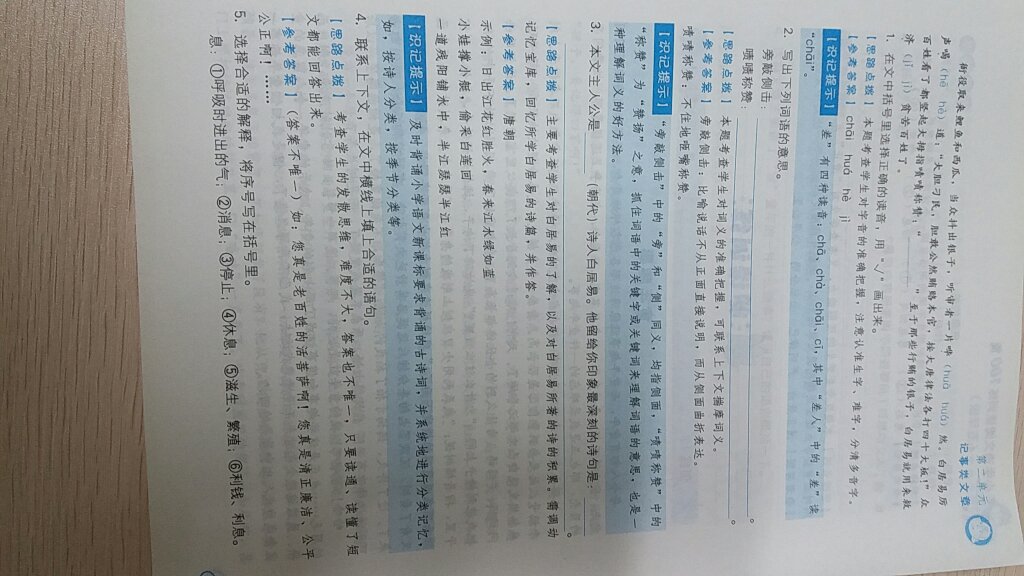 第二单元 读
记事类文章
衙役取来鲤鱼和西瓜，当众抖出银子，听审者一片哗（huā huá）然。白居易厉
声喝（hē hè）道：“大胆刁民，胆敢公然贿赂本官，按大唐律法各打四十大板！”众
百姓看了都竖起大拇指啧啧称赞：“ ”至于那些行贿的银子，白居易就用来救
济（jì jǐ）贫苦百姓了。
1. 在文中括号里选择正确的读音，用“√”画出来。
【思路点拨】本题考查学生对字音的准确把握，注意认准生字、难字，分清多音字。
【参考答案】chāi huá hè jì
【识记提示】“差”有四种读音：chā、chà、chāi、cī，其中“差人”中的“差”读
“chāi”。
2. 写出下列词语的意思。
旁敲侧击： 。
啧啧称赞： 。
【思路点拨】本题考查学生对词义的准确把握，可联系上下文揣摩词义。
【参考答案】旁敲侧击：比喻说话不从正面直接说明，而从侧面曲折表达。
啧啧称赞：不住地咂嘴称赞。
【识记提示】“旁敲侧击”中的“旁”和“侧”同义，均指侧面，“啧啧称赞”中的
“称赞”为“赞扬”之意，抓住词语中的关键字或关键词来理解词语的意思，也是一
种理解词义的好方法。
3. 本文主人公是 （朝代）诗人白居易。他留给你印象最深刻的诗句是：
。
【思路点拨】主要考查学生对白居易的了解，以及对白居易所著的诗的积累。需调动
记忆宝库，回忆所学白居易的诗篇，并作答。
【参考答案】唐朝
示例：日出江花红胜火，春来江水绿如蓝
小娃撑小艇，偷采白莲回
一道残阳铺水中，半江瑟瑟半江红
【识记提示】及时背诵小学语文新课标要求背诵的古诗词，并系统地进行分类记忆，
如，按诗人分类，按季节分类等。
4. 联系上下文，在文中横线上填上合适的语句。
【思路点拨】考查学生的发散思维，难度不大，答案也不唯一，只要读通、读懂了短
文都能回答出来。
【参考答案】（答案不唯一）如：您真是老百姓的活菩萨啊！您真是清正廉洁、公平
公正啊！……
5. 选择合适的解释，将序号写在括号里。
息：①呼吸时进出的气；②消息；③停止；④休息；⑤滋生、繁殖；⑥利钱、利息。